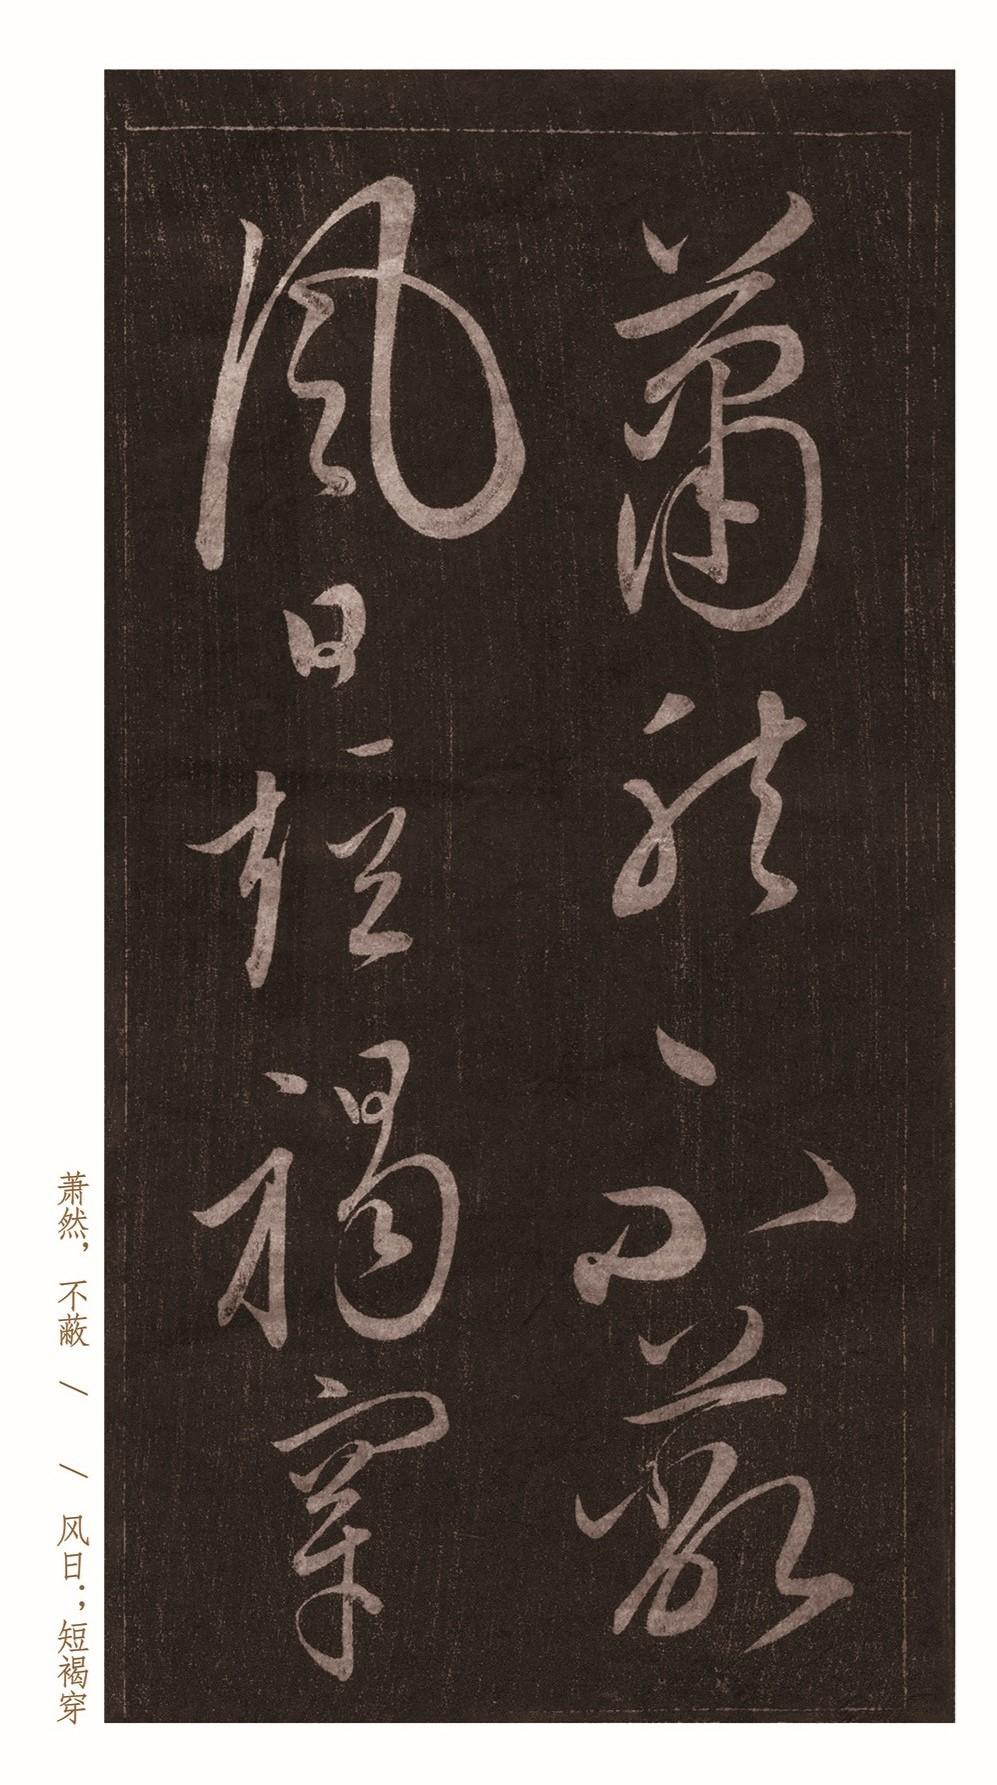 蕭然不蔽
風日短褐穿
萧然，不蔽 / / 风日；短褐穿